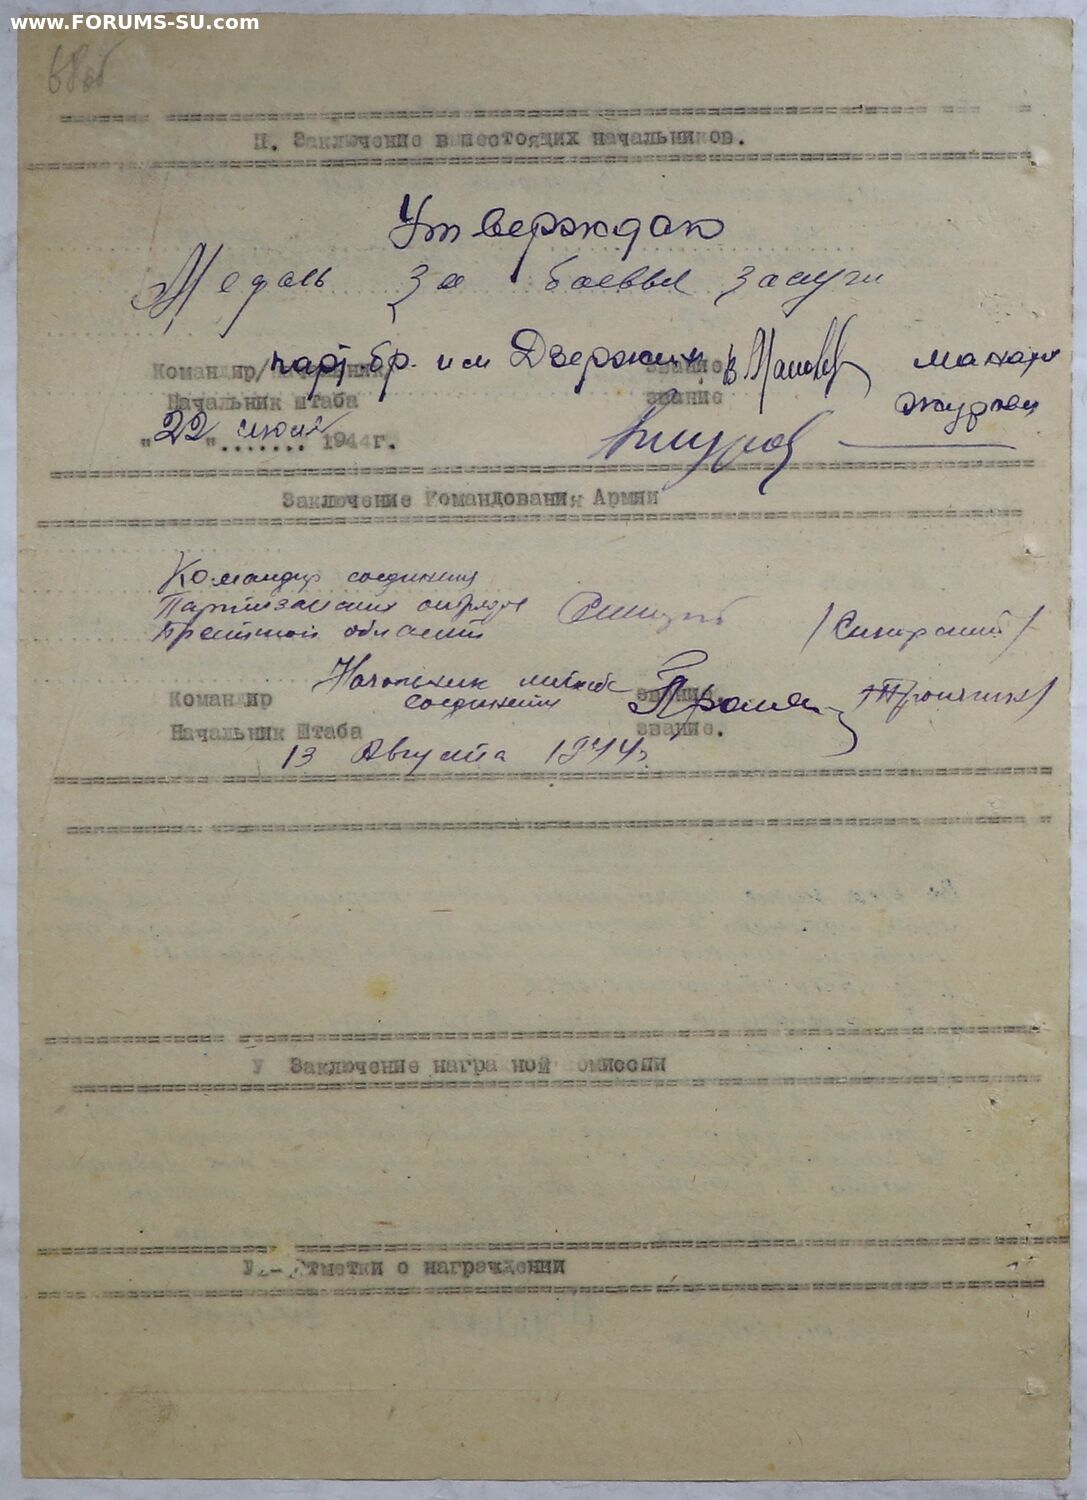 www.FORUMS-SU.com
68об
II. Заключение вышестоящих начальников.
Утверждаю
Медаль за боевые заслуги
Командир/Начальник парт. бр. им Дзержин звание
Начальник штаба звание
"22" июня 1944г.
Заключение Командования Армии
Командир соединения
Партизанских отрядов
Брестской области /Сикорский/
Начальник штаба
соединения
Командир звание.
Начальник Штаба звание.
13 Августа 1944г.
У Заключение награ ной омиссии
У1- Отметки о награждении